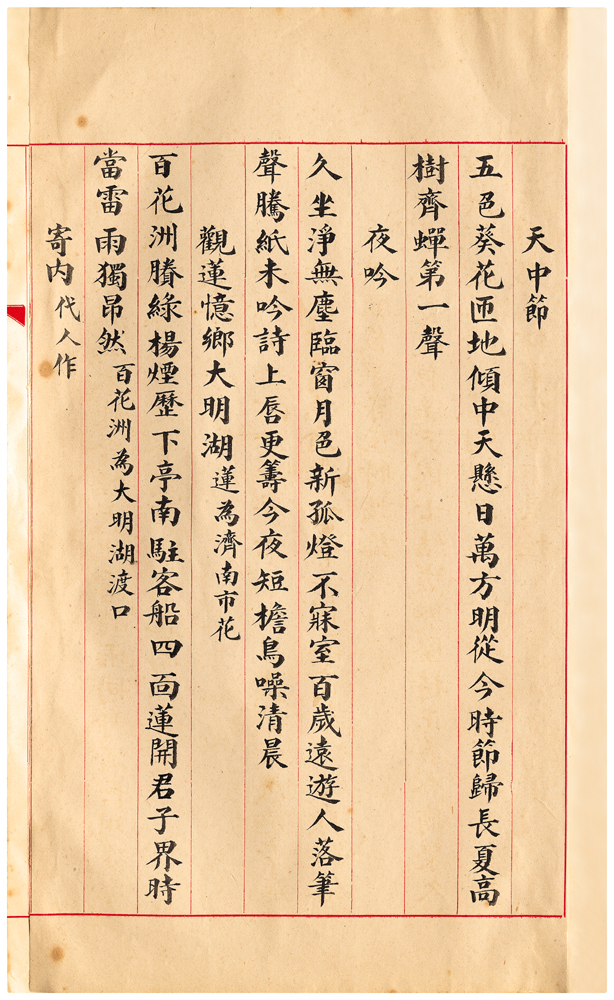 天中節
五色葵花匝地傾中天懸日萬方明從今時節歸長夏高
樹齊蟬第一聲
夜吟
久坐淨無塵臨窗月色新孤燈不寐室百歲遠遊人落筆
聲騰紙未吟詩上唇更籌今夜短檐鳥噪清晨
觀蓮憶鄉大明湖蓮為濟南市花
百花洲賸綠楊煙歷下亭南駐客船四面蓮開君子界時
當雷雨獨昂然百花洲為大明湖渡口
寄内代人作